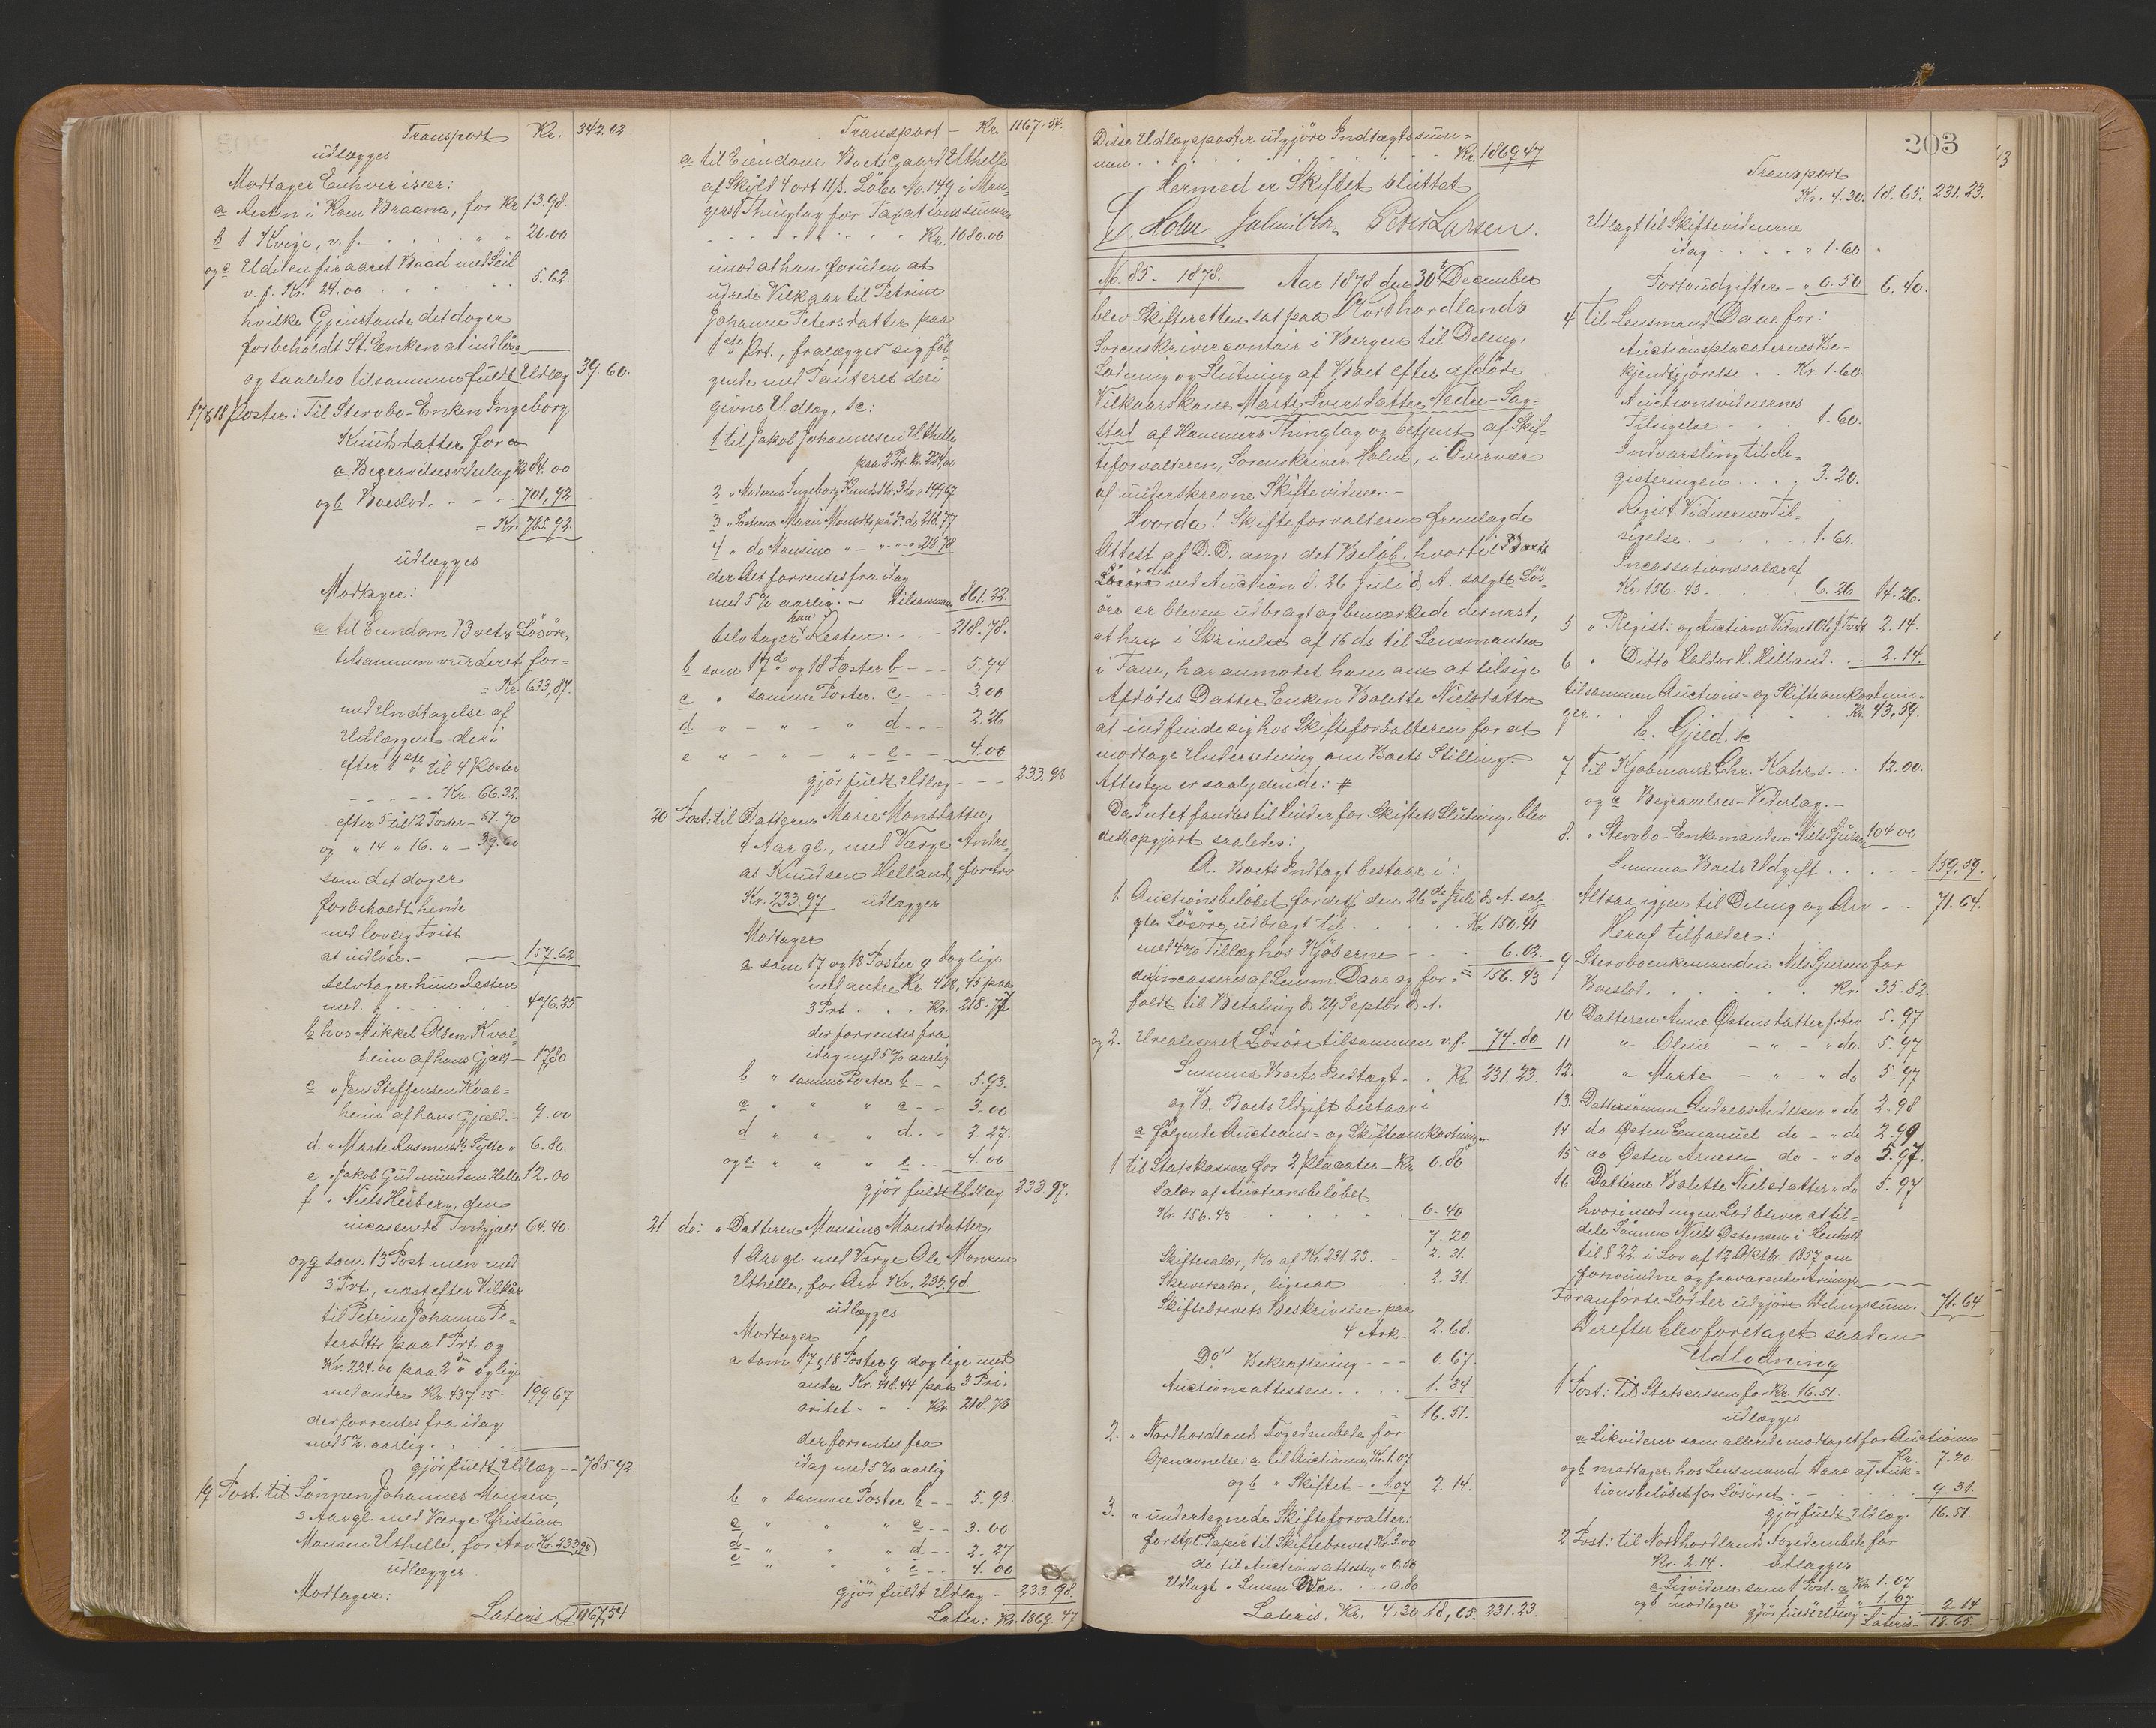 Transport Kr. 342.02
udlægges
Modtager Enhver især:
a Resten i Koen Braana, for Kr 13.98.
b 1 Kvige, v. f. . . . . " " 20.00
og c Udi en firaaret Baad med Seil
v. f. Kr. 24.00 . . . . . . 5.62.
hvilke Gjenstande det dog er
forbeholdt St. Enken at indløse
og saaledes tilsammen fuldt Udlæg 39.60.
17 & 18 Poster: Til Stervbo-Enken Ingeborg
Knudsdatter for
a Begravelsesvederlag Kr 84.00
og b Boeslod. - - - - 701,92
= Kr. 785.92.
udlægges
Modtager:
a til Eiendom Boets Løsøre,
tilsammen vurderet for =
= Kr. 633,87.
med Undtagelse af
Udlæggene deri
efter 1ste til 4 Poster
- - - - - Kr. 66.32.
efter 5 til 12 Poster - 51.70
og " 14 " 16. " - 39.60
som det dog er
forbeholdt hende
med lovlig Frist
at indløse. - 157.62
selv tager hun Resten
med. . . . . . 476.25
b hos Mikkel Olsen Kval=
heim af hans Gjæld - 17.80
c " Jens Steffensen Kval=
heim af hans Gjæld. - 9.00
d. " Marte Rasmusdtr " 6.80.
e " Jakob Gudmundsen Helle 12.00
f " Niels Heiberg, den
incasserede Indgjæld 64.40.
og g som 13 Post men med
3 Prt., næst efter Vilkår
til Petrine Johanne Pe=
tersdttr. paa 1 Prt. og
Kr. 224.00 paa 2do og lige
med andre Kr. 437.55 - 199.67
der forrentes fra idag
med 5% aarlig . .
gjør fuldt Udlæg - - 785.92.
19 Post: til Sønnen Johannes Monsen,
3 Aar gl. med Værge Christian
Monsen Uthelle, for Arv Kr. 233,98
udlægges
Modtager:
Lateris Kr 1167,54
Transport - Kr. 1167.54.
a til Eiendom Boets Gaard Uthelle
af Skyld 4 ort 11 s. Løbe No. 149 i Man=
gers Thinglag for Taxationssummen
. . . . . . . . . . Kr. 1080.00
imod at han foruden at
udrede Vilkaar til Petrine
Johanne Petersdatter paa
1ste Prt., fralægger sig føl=
gende med Panteret deri
givne Udlæg, sc:
1 til Jakob Johannesen Uthelle
paa 2 Prt. Kr. 224,00
2 " Moderen Ingeborg Knudsdtr. 3 do " 199,67
3 " Søsteren Marie Monsdtr. paa do. do 218.77
4 " do Monsine " - " - " - 218.78
der Alt forrentes fra idag
med 5% aarlig. - tilsammen 861.22.
selv tager han Resten. . . - 218.78.
b som 17de og 18 Poster b - - - 5.94
c " samme Poster. c - - - 3.00
d " - " - " d - - - 2.26
e " - " - " - e - - 4.00
gjør fuldt Udlæg - - - 233.98
20 Post: til Datteren Marie Monsdatter,
4 Aar gl., med Værge Andre=
as Knudsen Helland, for Arv
Kr. 233.97 udlægges
Modtager
a som 17 og 18 Poster g dog lige
med andre Kr. 418,45 paa
3 Prt. . . Kr. 218.77
der forrentes fra
idag med 5% aarlig
b " samme Poster b - - 5.93.
c " " " c - - 3.00
d " " " d. - - 2.27.
og e " " " e - - 4.00
gjør fuldt Udlæg 233.97.
21 do: " Datteren Monsine Monsdatter,
1 Aar gl. med Værge Ole Monsen
Uthelle, for Arv Kr. 233,98.
udlægges
Modtager
a som 17 & 18 Poster g. dog lige med
andre Kr. 418.44 paa 3 Pri-
oritet - . . Kr 218.78
der forrentes fra
idag med 5% aarlig
b " samme Poster b - - 5.93.
c " " " c - - 3.00
d " " " d - - 2.27
e " " " e - - 4.00
gjør fuldt Udlæg - 233.98
Later: Kr. 1869.47
Disse Udlægsposter udgjøre Indtægtssum=
men . . . . . . . Kr. 1869.47
Hermed er Skiftet sluttet
Holm Peter Larsen.
No. 85. 1878. Aar 1878 den 30te December
blev Skifteretten sat paa Nordhordlands
Sorenskrivercontoir i Bergen til Deling,
Lodning og Slutning af Boet efter afdøde
Vilkaarskone Marte Iversdatter Nedre-Sag=
stad af Hammers Thinglag og betjent af Skif=
teforvalteren, Sorenskriver Holm, i Overvær
af underskrevne Skiftevidner. -
Hvorda! Skifteforvalteren fremlagde
Attest af D.D. ang: det Beløb, hvortil Boets
ved Auction d. 26 Juli d. A. solgte Løs=
øre er bleven udbragt og bemærkede dernæst,
at han i Skrivelse af 16 ds til Lensmanden
i Fane, har anmodet ham om at tilsige
Afdødes Datter Enken Balette Nielsdatter
at indfinde sig hos Skifteforvalteren for at
modtage Underretning om Boets Stilling.
Attesten er saalydende: #
Da Intet fandtes til Hinder for Skiftets Slutning, blev
dette opgjort saaledes:
A. Boets Indtægt bestaar i:
1. Auctionsbeløbet for det den 26de Juli d. A. sol=
gte Løsøre, udbragt til . . . . . Kr. 150.41
med 4% Tillæg hos Kjøberne - - - 6.02.
der incasseres af Lensm. Daae og for= = 156.43
faldt til Betaling d. 29 Septbr. d. A.
og 2. Urealiseret Løsøre tilsammen v. f. - 74.80
Summa Boets Indtægt - . Kr. 231.23.
og B. Boets Udgift bestaar i
a følgende Auctions- og Skifteomkostninger
1 til Statskassen for 2 Placater - Kr. 0.80
Salær af Auctionsbeløbet
Kr. 156.43 . . . . . . . 6.40
7.20
Skiftesalær, 1% af Kr. 231.23. - 2.31.
Skriversalær, ligesaa . . . 2.31.
Skiftebrevets Beskrivelse paa
4 Ark - 2.68.
Do's Bekræftning - - - 0.67.
Auctionsattesten. . . . 1.34
16.51.
2. " Nordhordlands Fogedembede for
Opnævnelse: a, til Auctionen, Kr. 1.07
og b " Skiftet - " 1.07 2.14.
3. " undertegnede Skifteforvalter:
for stpl. Papir til Skiftebrevet Kr. 3.00
do til Auctionsattesten " 0.50
Udlagt " Lensm. Daae . . . 0.80
Lateris, Kr. 4.30 18,65. 231.23.
203
Transport
Kr. 4.30. 18.65. 231.23.
Udlagt til Skiftevidnerne
idag . . . . " 1.60 "
Portoudgifter - " 0.50 6.40.
4 til Lensmand Daae for:
Auctionsplacaternes Be=
kjendtgjørelse . . Kr. 1.60.
Auctionsvidnernes
Tilsigelse - . . 1.60.
Indvarsling til Re=
gisteringen . . . , 3.20.
Regist. Vidnernes Til=
sigelse . . . . . . . 1.60.
Incassationssalær af
Kr. 156.43 . . . . . 6.26 14.26.
5 " Regist: og Auctions Vidnet 2.14.
6 " Ditto Haldor H. Hilland . . . 2.14.
tilsammen Auctions- og Skifteomkostnin=
ger . . . . . . . . Kr. 43,59.
b. Gjeld. sc
7 Til Kjøbmand Chr. Kahrs . . - 12.00.
og c Begravelses-Vederlag. -
8. " Stervbo-Enkemanden Niels Sjursen 104.00
Summa Boets Udgift . . . . - - 159,59.
Altsaa igjen til Deling og Arv - - 71.64.
Heraf tilfalder:
9 Stervboenkemanden Nils Sjursen for
Boeslod . . . . . . . Kr. 35.82.
10 Datteren Anne Østensdatter f. Arv 5.97
11 " Oline - " - " do. 5.97
12. " Marte - " - " do 5.97
13. Dattersønnen Andreas Andersen " do 2.98
14 do Østen Emanuel do - " do 2.99
15 do Østen Arnesen do - " do 5.97.
16 Datteren Balette Nielsdatter " do 5.97
hvorimod ingen Lod bliver at til=
dele Sønnen Niels Østensen i Henhold
til § 22 i Lov af 12 Oktbr. 1857 om
forsvundne og fraværende Arvinger
Foranførte Lodder udgjøre Delingssum: 71.64
Derefter blev foretaget saadan
Udlodning
1 Post: til Statscassen for Kr. 16.51.
udlægges
a Likviderer som allerede modtaget for Auctionen
Kr. 7.20.
og b modtager hos Lensmand Daae af Auk=
tionsbeløbet for Løsøret. - . . . . 9.31.
gjør fuldt Udlæg. 16.51.
2 Post: til Nordhordlands Fogedembede for
Kr. 2.14. udlægges
a Liqviderer som 1 Post. a Kr. 1.07
og b modtager " 1 " b " 1.07
gjør fuldt Udlæg 2.14
Lateris - 18.65.